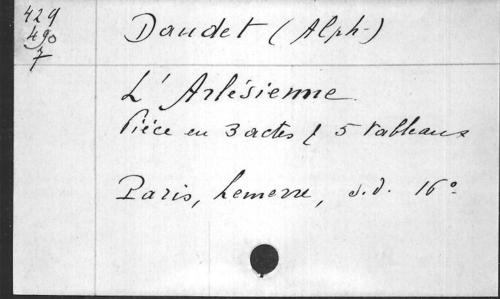 429
490
7
Daudet (Alph-)
L'Arlésienne
Pièce en 3 actes & 5 tableaux
Paris, Lemerre, s.d. 16°